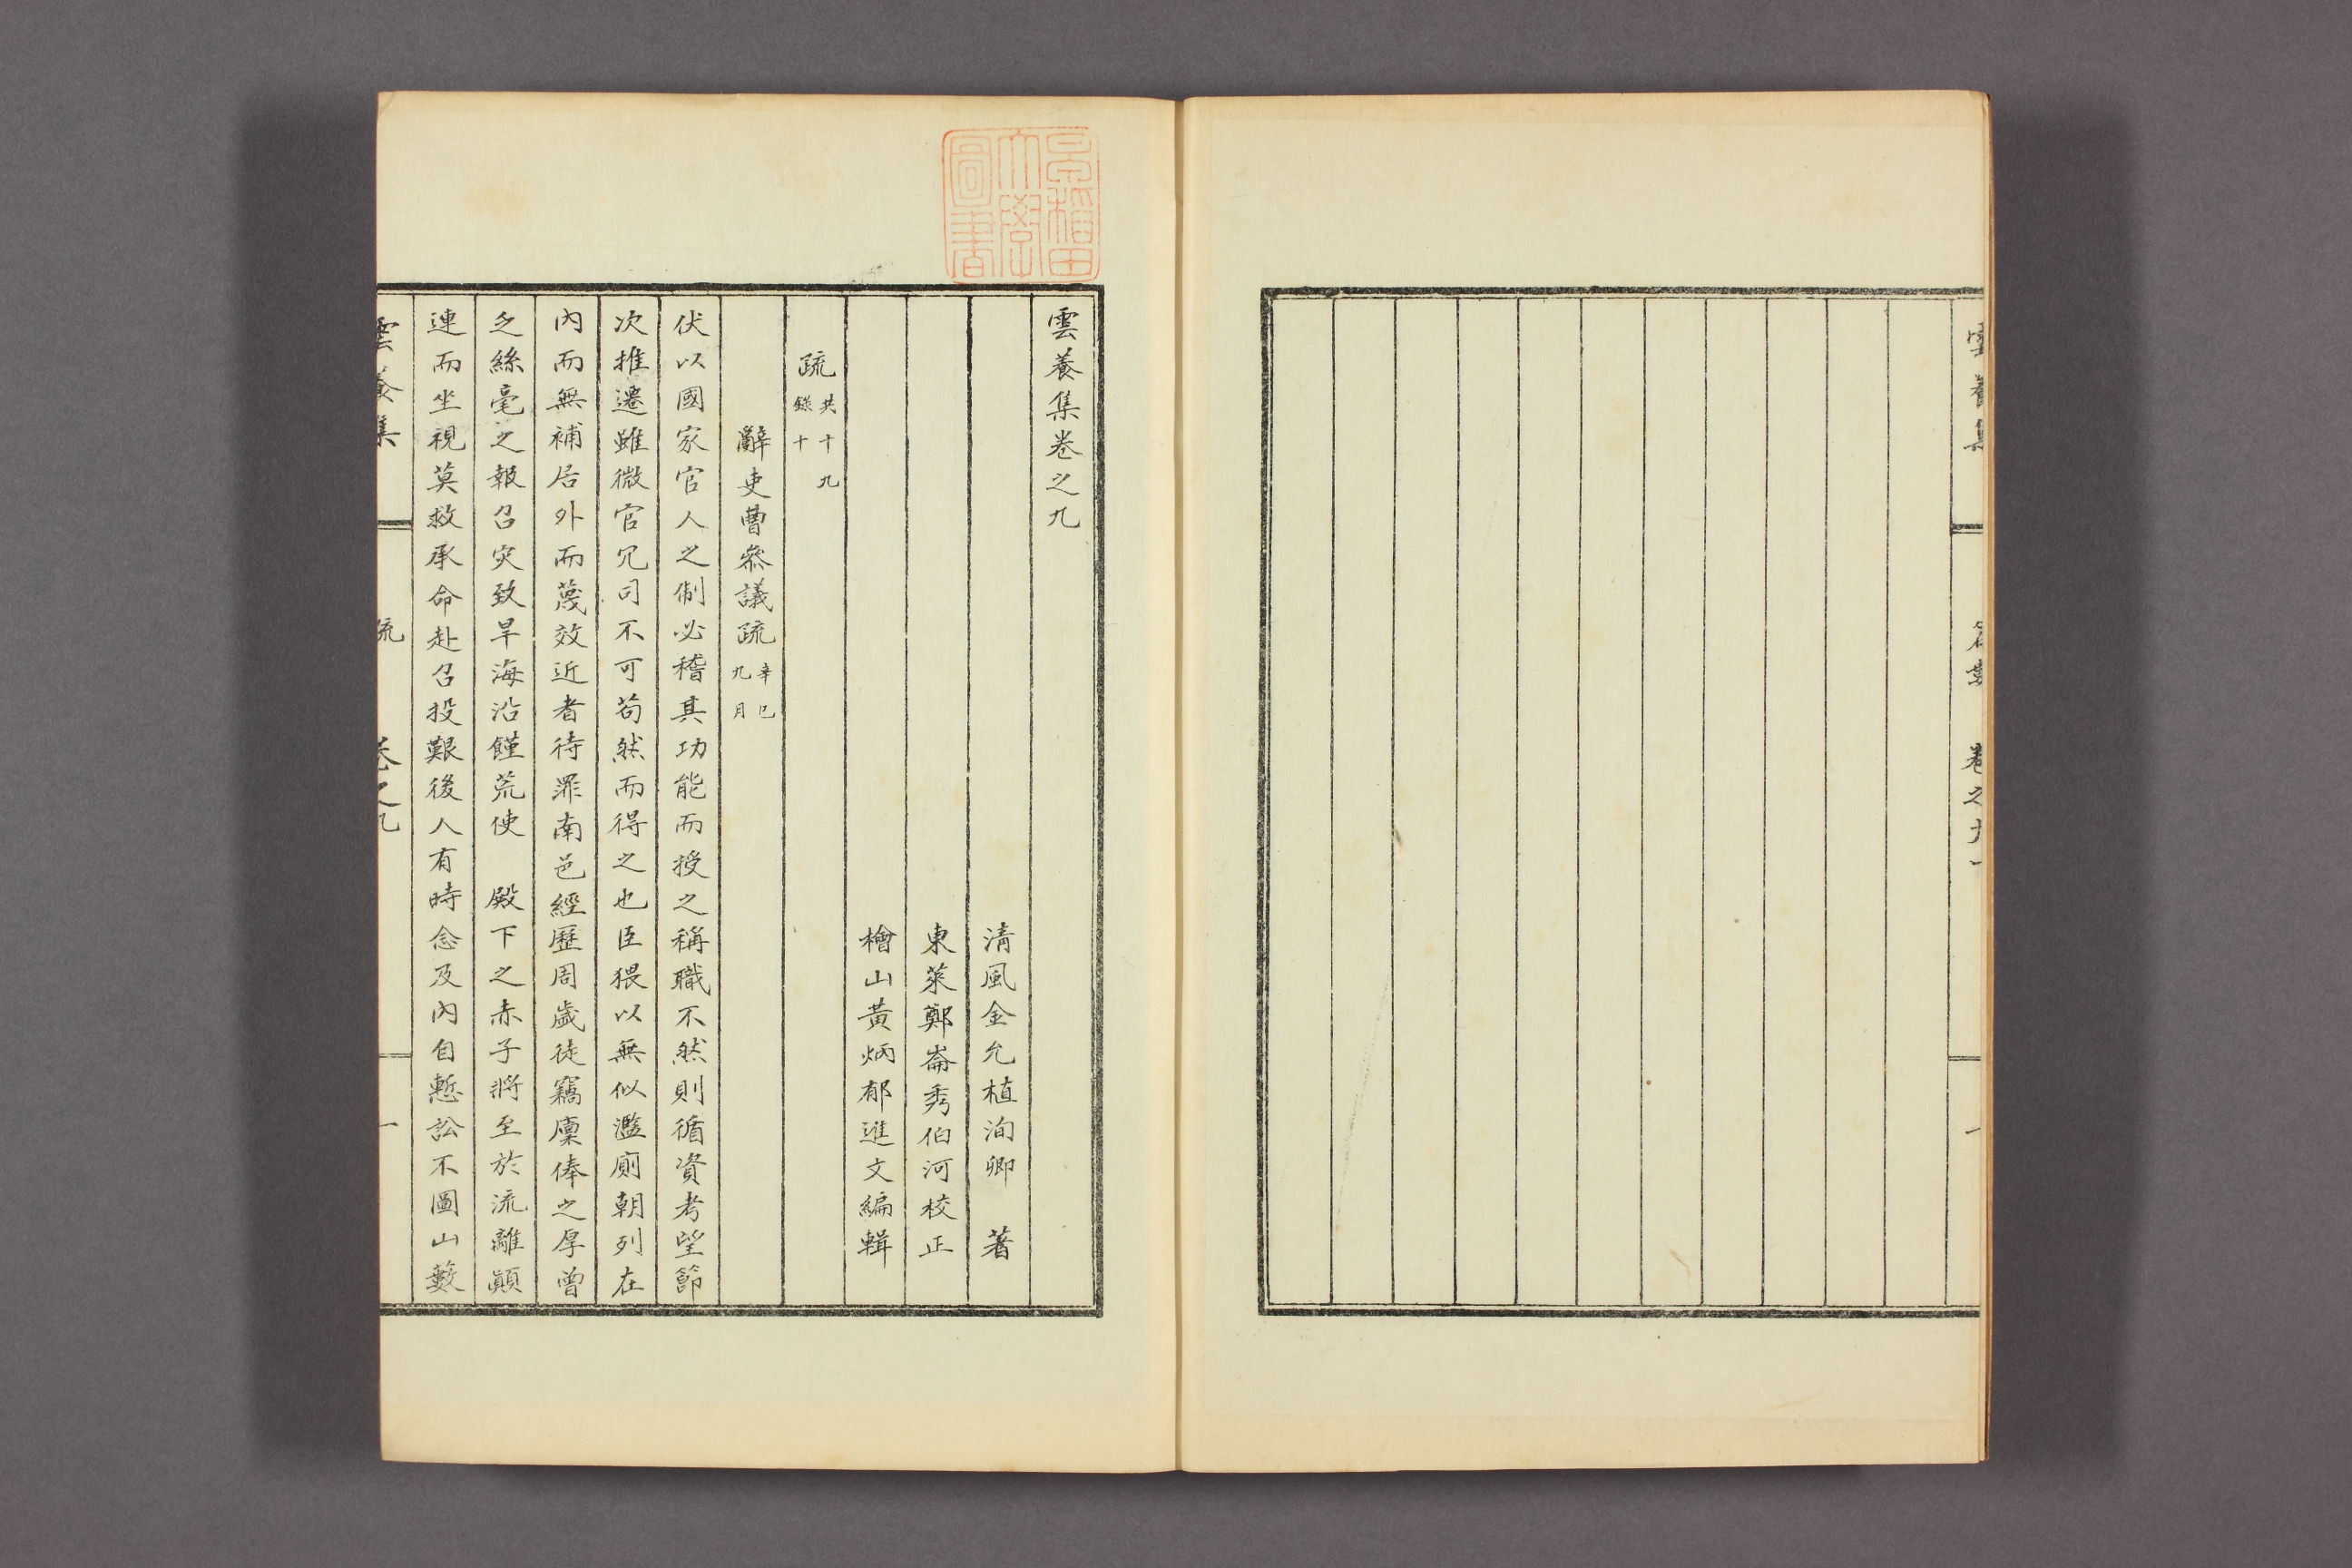 雲養集卷之九
清風金允植洵卿　著
東萊鄭崙秀伯河校正
檜山黃炳郁進文編輯
疏共十九錄十
辭吏曹參議疏辛巳九月
伏以國家官人之制必稽其功能而授之稱職不然則循資考望節
次推遷雖微官冗司不可苟然而得之也臣猥以無似濫廁朝列在
內而無補居外而蔑效近者待罪南邑經歷周歲徒竊廩俸之厚曾
乏絲毫之報召灾致旱海沿饉荒使　殿下之赤子將至於流離顚
連而坐視莫救承命赴召投艱後人有時念及內自慙訟不圖山藪
雲養集
疏
卷之九
一
早稻田
大學
圖書